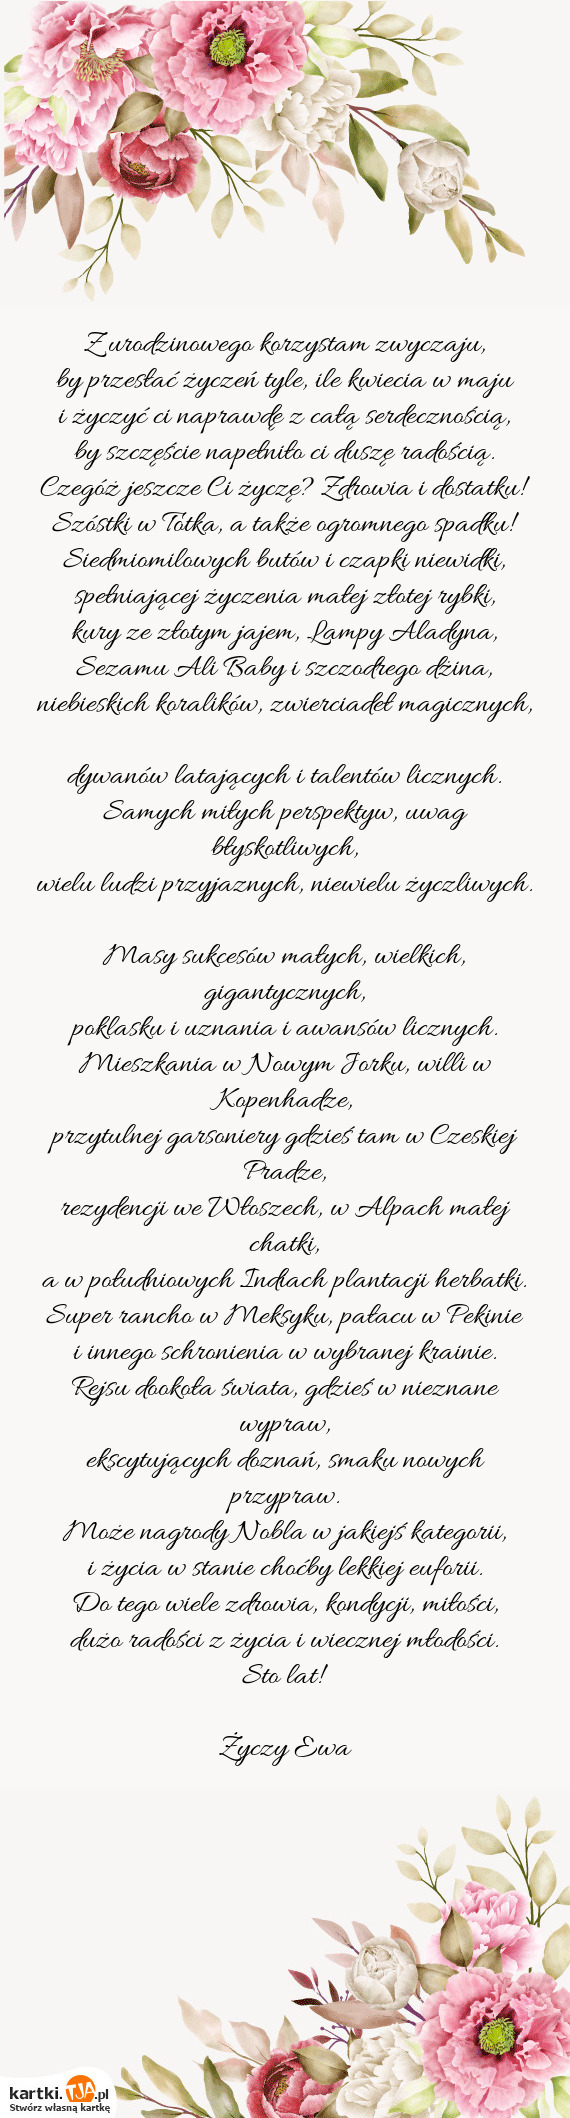 Z urodzinowego korzystam zwyczaju,
by przesłać życzeń tyle, ile kwiecia w maju
i życzyć ci naprawdę z całą serdecznością,
by szczęście napełniło ci duszę radością.
Czegóż jeszcze Ci życzę? Zdrowia i dostatku!
Szóstki w Totka, a także ogromnego spadku!
Siedmiomilowych butów i czapki niewidki,
spełniającej życzenia małej złotej rybki,
kury ze złotym jajem, Lampy Aladyna,
Sezamu Ali Baby i szczodrego dżina,
niebieskich koralików, zwierciadeł magicznych,
dywanów latających i talentów licznych.
Samych miłych perspektyw, uwag
błyskotliwych,
wielu ludzi przyjaznych, niewielu życzliwych.
Masy sukcesów małych, wielkich,
gigantycznych,
poklasku i uznania i awansów licznych.
Mieszkania w Nowym Jorku, willi w
Kopenhadze,
przytulnej garsoniery gdzieś tam w Czeskiej
Pradze,
rezydencji we Włoszech, w Alpach małej
chatki,
a w południowych Indiach plantacji herbatki.
Super rancho w Meksyku, pałacu w Pekinie
i innego schronienia w wybranej krainie.
Rejsu dookoła świata, gdzieś w nieznane
wypraw,
ekscytujących doznań, smaku nowych
przypraw.
Może nagrody Nobla w jakiejś kategorii,
i życia w stanie choćby lekkiej euforii.
Do tego wiele zdrowia, kondycji, miłości,
dużo radości z życia i wiecznej młodości.
Sto lat!
Życzy Ewa
kartki.TJA.pl
Stwórz własną kartkę